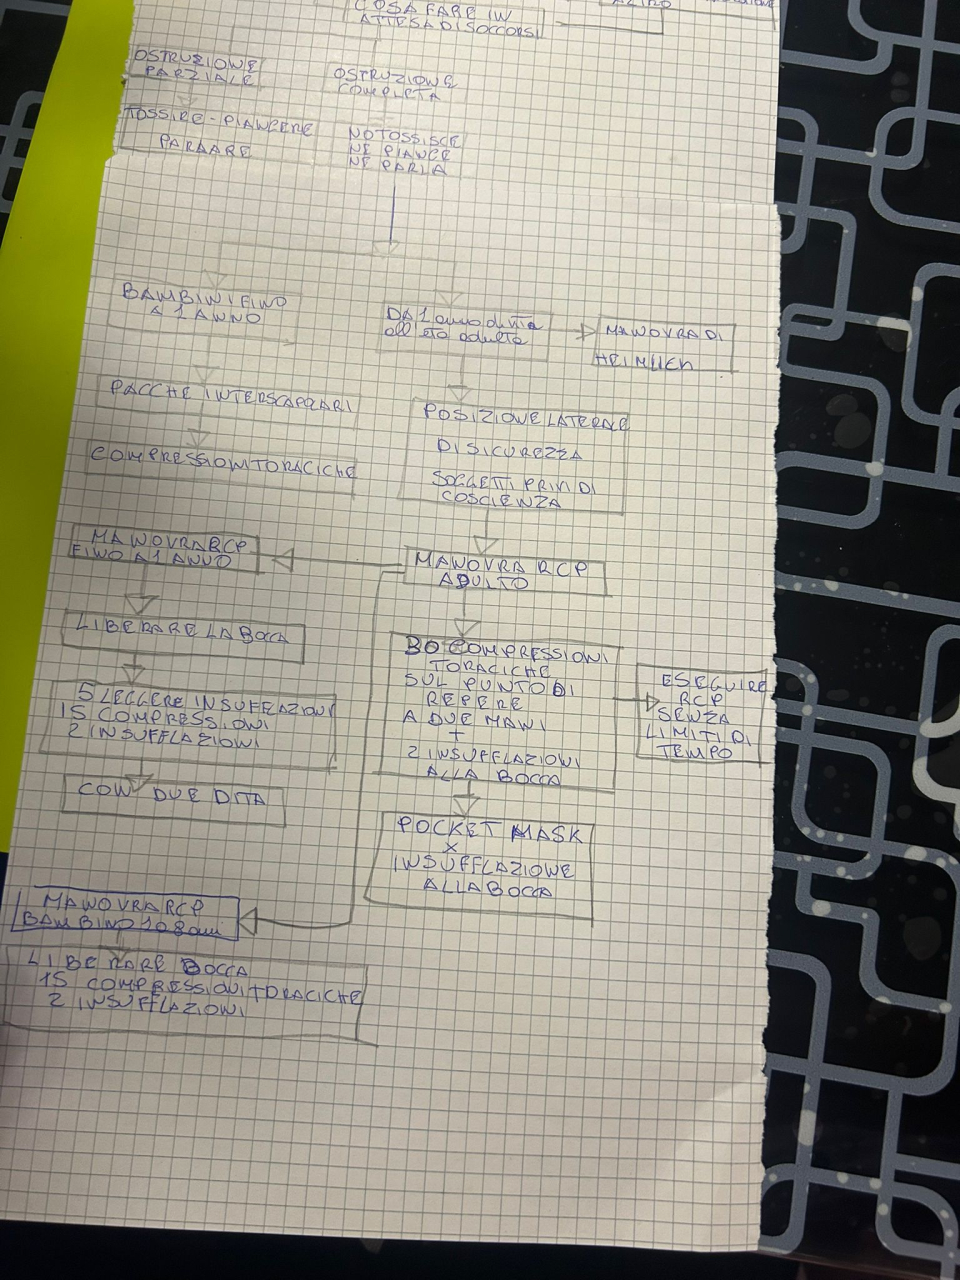 COSA FARE IN
ATTESA DI SOCCORSI
OSTRUZIONE
PARZIALE
OSTRUZIONE
COMPLETA
TOSSIRE - PIANGERE
PARAARE
NO TOSSISCE
NE PIANGE
NE PARLA
BAMBINI FINO
A 1 ANNO
DA 1 anno di vita
all'età adulta
MANOVRA DI
HEIMLICH
PACCHE INTERSCAPOLARI
COMPRESSIONI TORACICHE
POSIZIONE LATERALE
DI SICUREZZA
SOGGETTI PRIVI DI
COSCIENZA
MANOVRA RCP
FINO A 1 ANNO
MANOVRA RCP
ADULTO
LIBERARE LA BOCCA
5 LEGGERE INSUFFLAZIONI
15 COMPRESSIONI
2 INSUFFLAZIONI
CON DUE DITA
30 COMPRESSIONI
TORACICHE
SUL PUNTO DI
REPERE
A DUE MANI
+
2 INSUFFLAZIONI
ALLA BOCCA
ESEGUIRE
RCP
SENZA
LIMITI DI
TEMPO
POCKET MASK
X
INSUFFLAZIONE
ALLA BOCCA
MANOVRA RCP
BAMBINO 1 o 8 anni
LIBERARE BOCCA
15 COMPRESSIONI TORACICHE
2 INSUFFLAZIONI